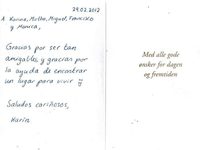 29.02.2012
A Karina, Mirtha, Miguel, Francisco
y Monica,
Gracias por ser tan
amigables, y gracias por
la ayuda de encontrar
un lugar para vivir
Saludos cariñosos,
Karin
Med alle gode
ønsker for dagen
og fremtiden